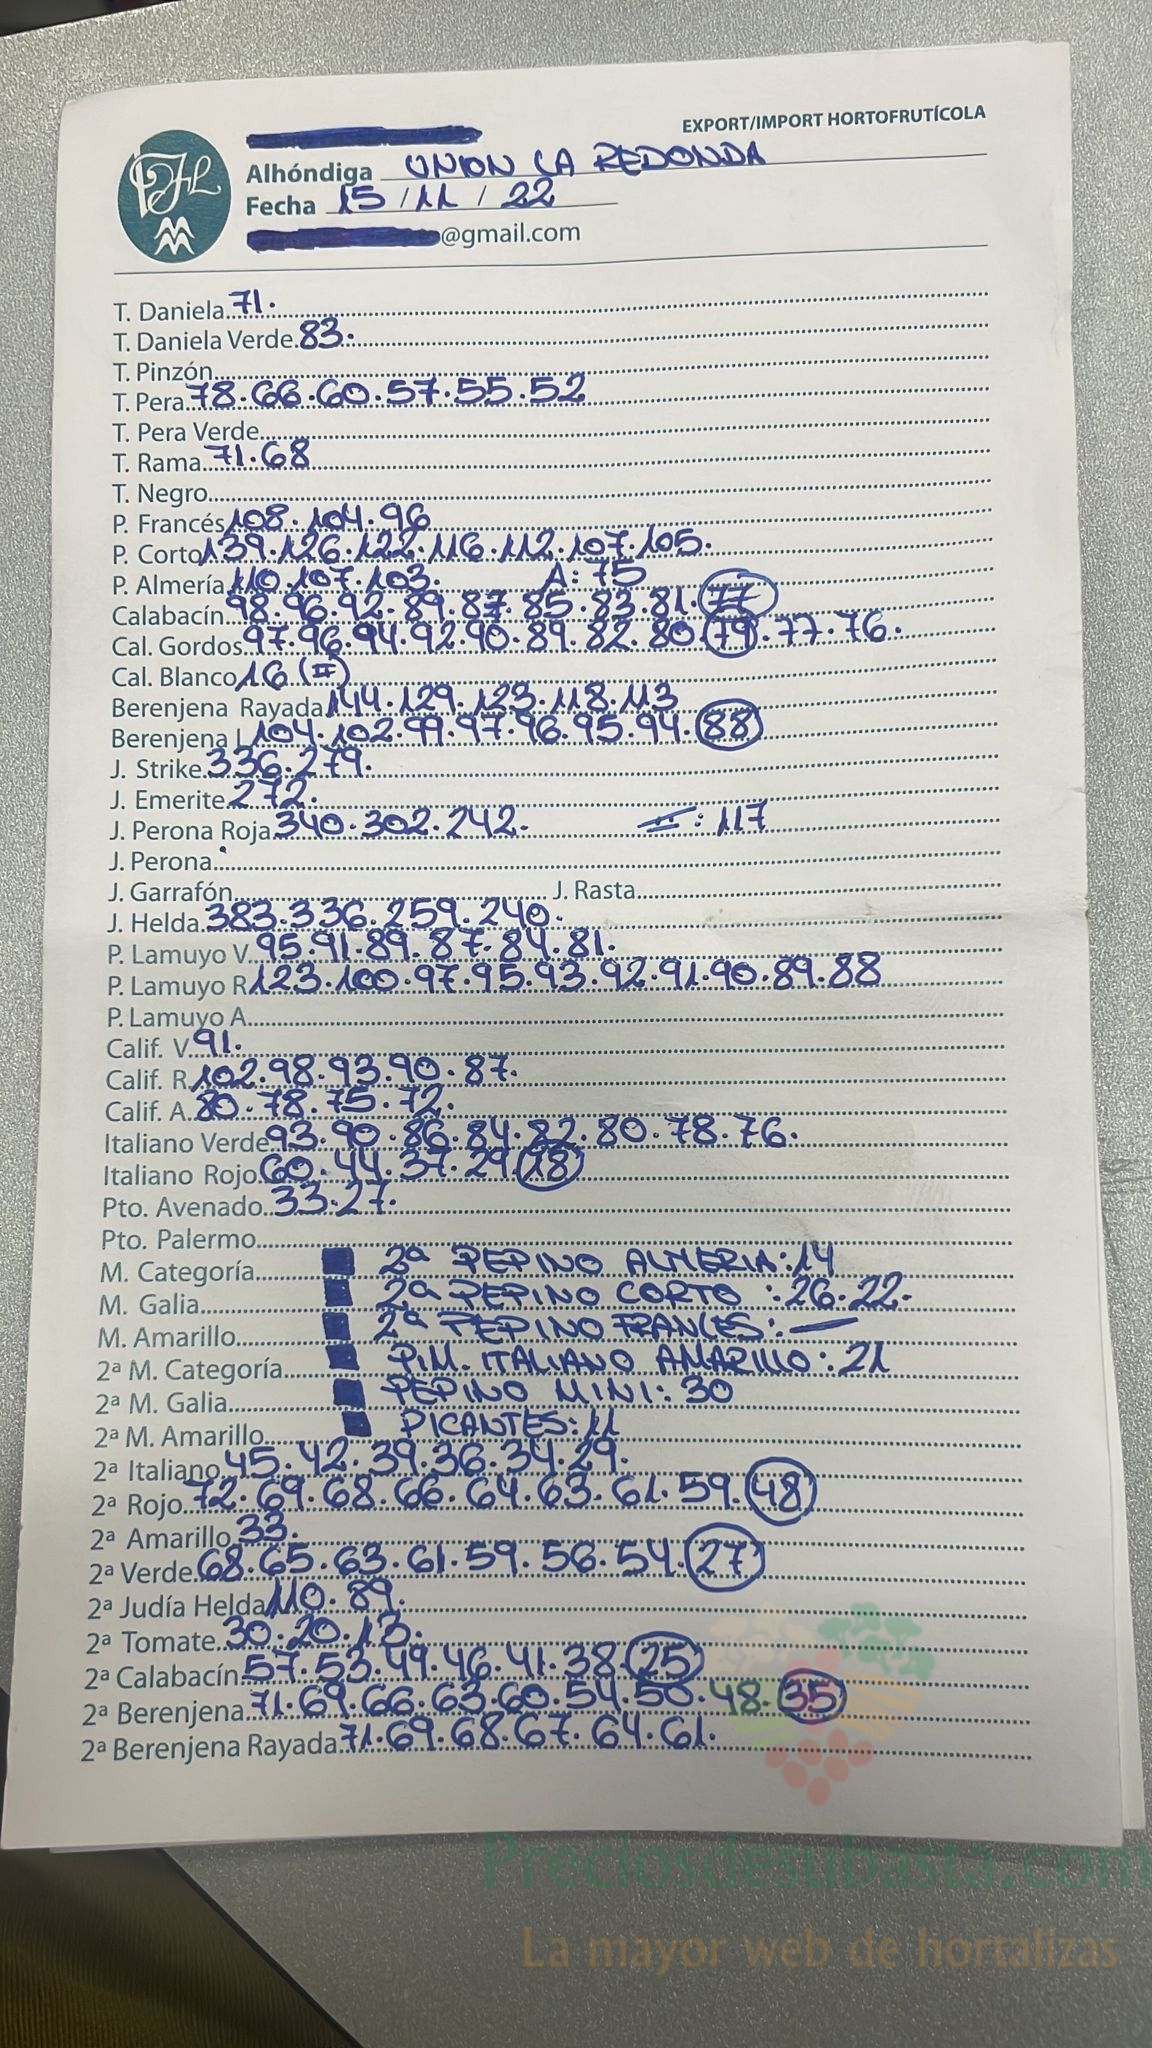 EXPORT/IMPORT HORTOFRUTÍCOLA
Alhóndiga UNION LA REDONDA
Fecha 15/11/22
@gmail.com
T. Daniela 71.
T. Daniela Verde 83.
T. Pinzón
T. Pera 78.66.60.57.55.52
T. Pera Verde
T. Rama 71.68
T. Negro
P. Francés 108.104.96
P. Corto 139.126.122.116.112.107.105.
P. Almería 110.107.103. A: 75
Calabacín 98.96.92.89.87.85.83.81.77
Cal. Gordos 97.96.94.92.90.89.82.80.79.77.76.
Cal. Blanco 16 (II)
Berenjena Rayada 144.129.123.118.113
Berenjena L 104.102.99.97.96.95.94.88
J. Strike 336.279.
J. Emerite 272.
J. Perona Roja 340.302.242. II: 117
J. Perona
J. Garrafón J. Rasta
J. Helda 383.336.259.240.
P. Lamuyo V 95.91.89.87.84.81.
P. Lamuyo R 123.100.97.95.93.92.91.90.89.88
P. Lamuyo A
Calif. V 91.
Calif. R 102.98.93.90.87.
Calif. A 80.78.75.72.
Italiano Verde 93.90.86.84.82.80.78.76.
Italiano Rojo 60.44.37.29.18
Pto. Avenado 33.27.
Pto. Palermo
M. Categoría 2ª PEPINO ALMERIA: 14
M. Galia 2ª PEPINO CORTO: 26.22.
M. Amarillo 2ª PEPINO FRANCES: —
2ª M. Categoría PIM. ITALIANO AMARILLO: 21
2ª M. Galia PEPINO MINI: 30
2ª M. Amarillo PICANTES: 11
2ª Italiano 45.42.39.36.34.29.
2ª Rojo 72.69.68.66.64.63.61.59.48
2ª Amarillo 33.
2ª Verde 68.65.63.61.59.56.54.27
2ª Judía Helda 110.89.
2ª Tomate 30.20.13.
2ª Calabacín 57.53.49.46.41.38.25
2ª Berenjena 71.69.66.63.60.54.50.48.35
2ª Berenjena Rayada 71.69.68.67.64.61.
Preciosdesubasta.com
La mayor web de hortalizas